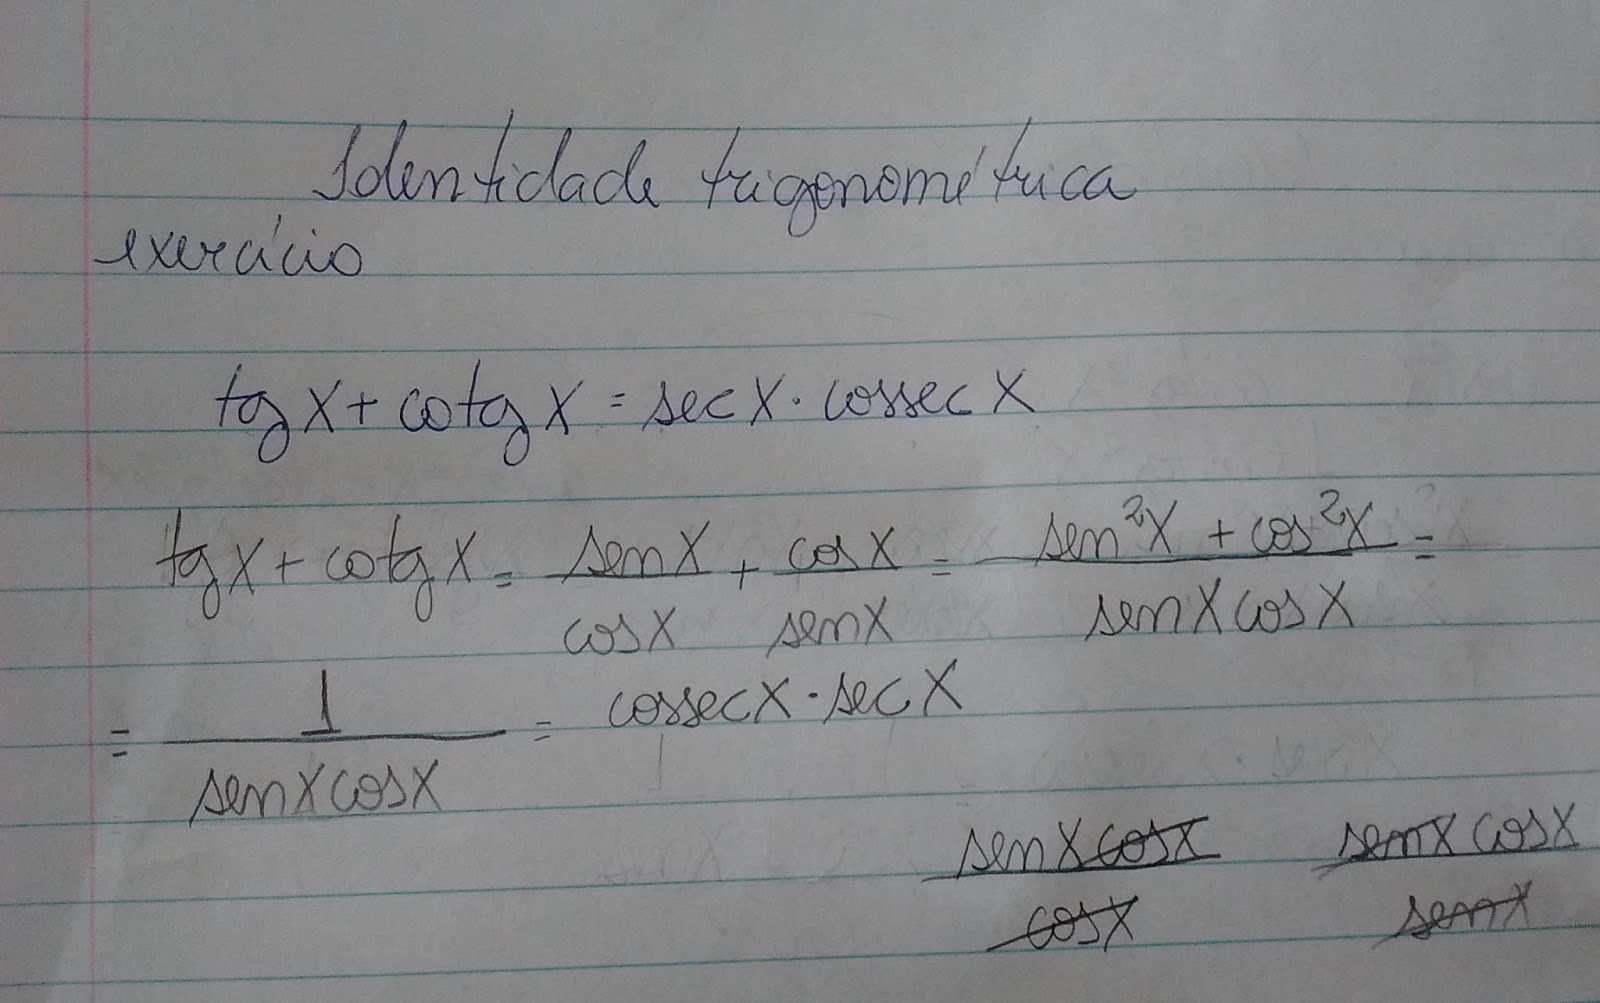 Identidade trigonométrica
exercício
tg x + cotg x = sec x · cossec x
tg x + cotg x = sen x / cos x + cos x / sen x = sen²x + cos²x / sen x cos x =
= 1 / sen x cos x = cossec x · sec x
sen x cos x / cos x sen x cos x / sen x